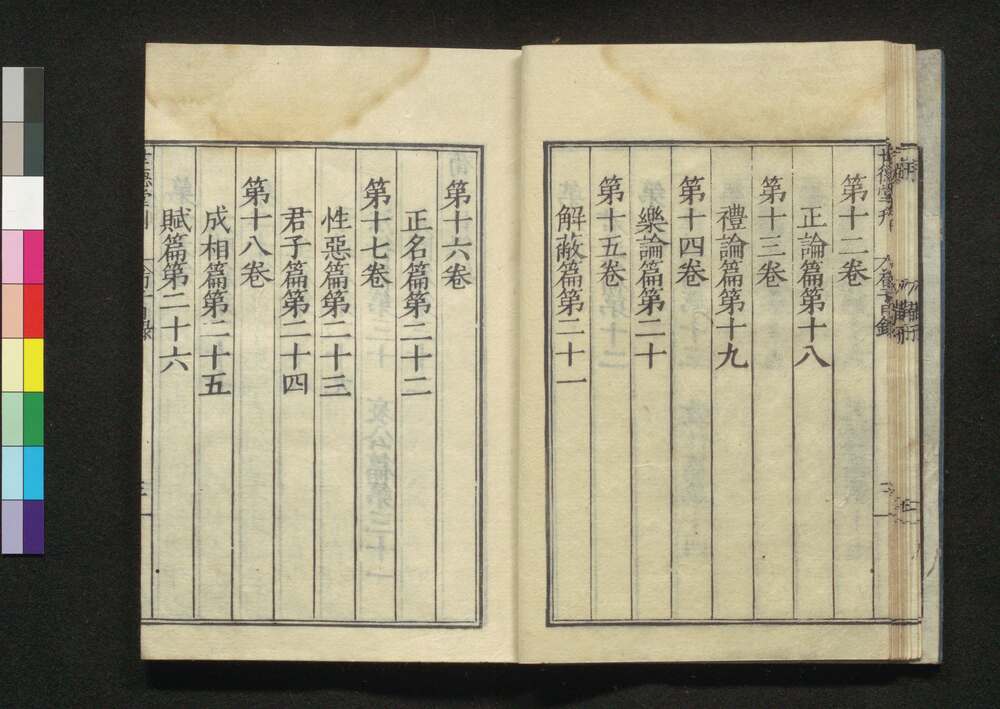 第十二卷
正論篇第十八
第十三卷
禮論篇第十九
第十四卷
樂論篇第二十
第十五卷
解蔽篇第二十一
第十六卷
正名篇第二十二
第十七卷
性惡篇第二十三
君子篇第二十四
第十八卷
成相篇第二十五
賦篇第二十六